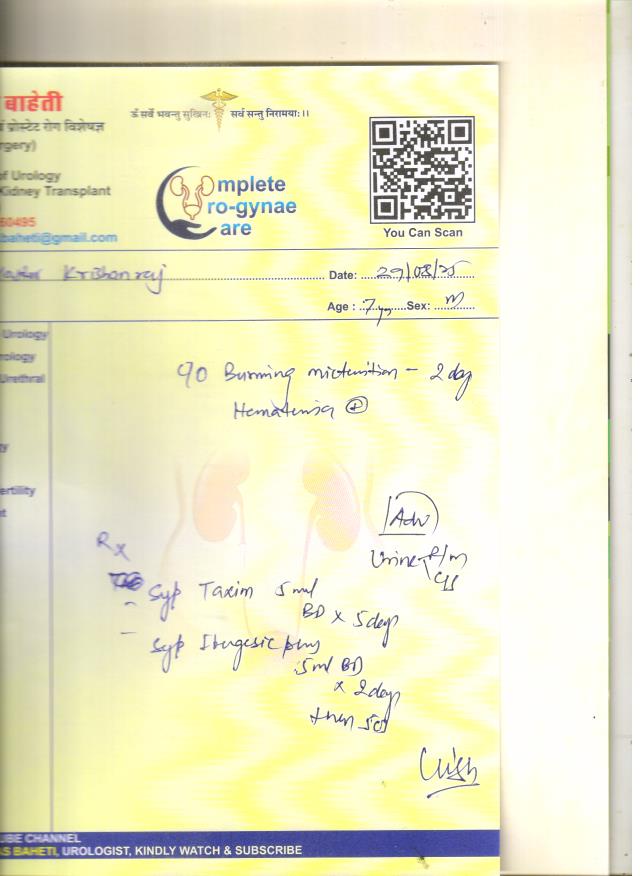 बाहेती
ॐ सर्वे भवन्तु सुखिनः सर्व सन्तु निरामयाः।।
प्रोस्टेट रोग विशेषज्ञ
rgery)
of Urology
Kidney Transplant
60495
baheti@gmail.com
omplete
ro-gynae
are
You Can Scan
Krishnraj Date: 29/08/25
Age : 7 yr Sex: M
Urology
rology
Urethral
ertility
C/O Burning micturition - 2 day
Hematuria ⊕
Adv
Urine R/M
C/S
Rx
- Syp Taxim 5 ml
BD x 5 days
- Syp Ibugesic plus
5ml BD
x 2 days
then SOS
UBE CHANNEL
AS BAHETI, UROLOGIST, KINDLY WATCH & SUBSCRIBE